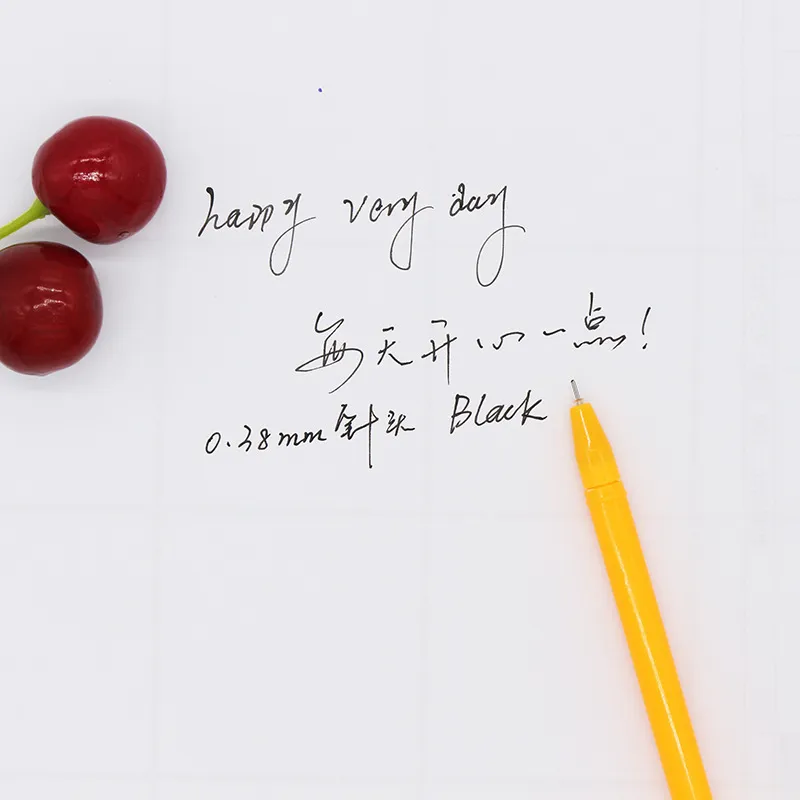 happy very day
每天开心一点!
0.38mm针头 Black